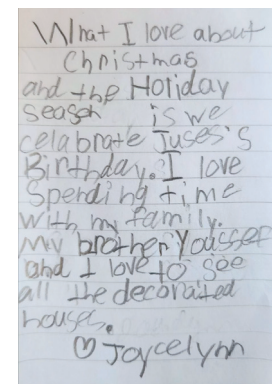 What I love about
Christmas
and the Holiday
season is we
celabrate Juses's
Birthday. I love
Spending time
with my family.
My brother Youssef
and I love to see
all the decorated
houses.
♡ Joycelynn